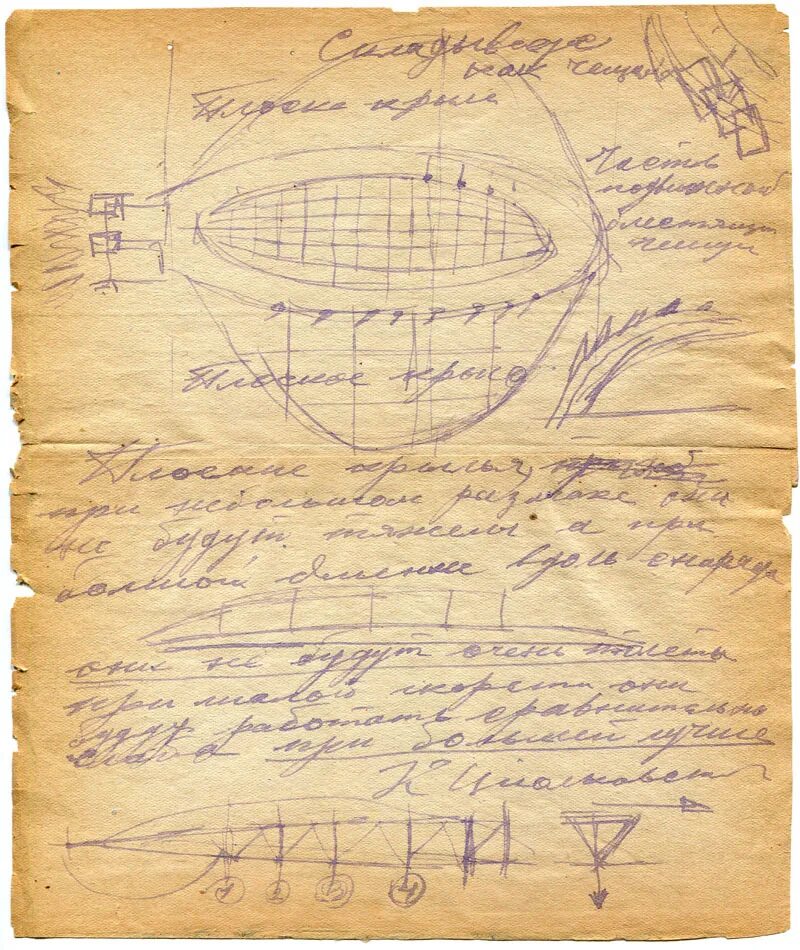 Складывается
как чешуя
Плоское крыло
Часть
подвижной
блестящей
чешуи
Плоское крыло
Плоские крылья,
при небольшом размахе они
не будут тяжелы а при
большой длине вдоль снаряда
они не будут очень толсты
при малой скорости они
будут работать сравнительно
слабо а при большей лучше
К Циолковский